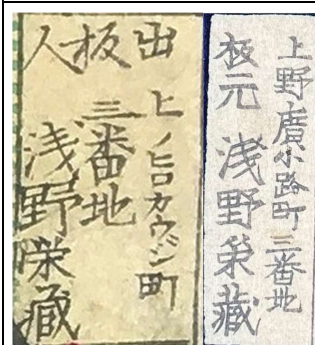 出板人
上ノヒロカウジ町
三番地
浅野栄藏
上野廣小路町三番地
板元 浅野栄藏